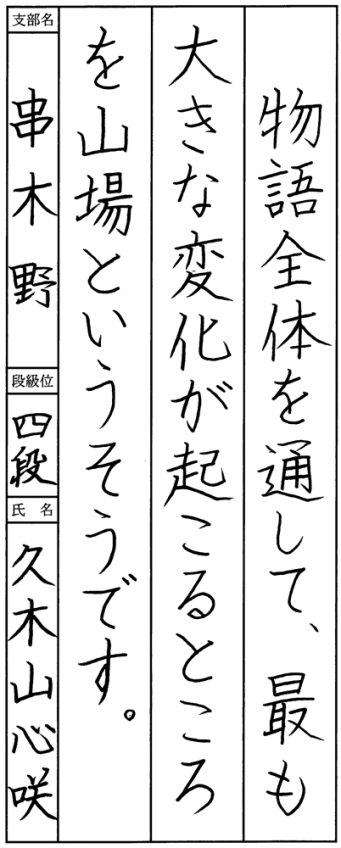 物語全体を通して、最も
大きな変化が起こるところ
を山場というそうです。
支部名
串木野
段級位
四段
氏名
久木山心咲